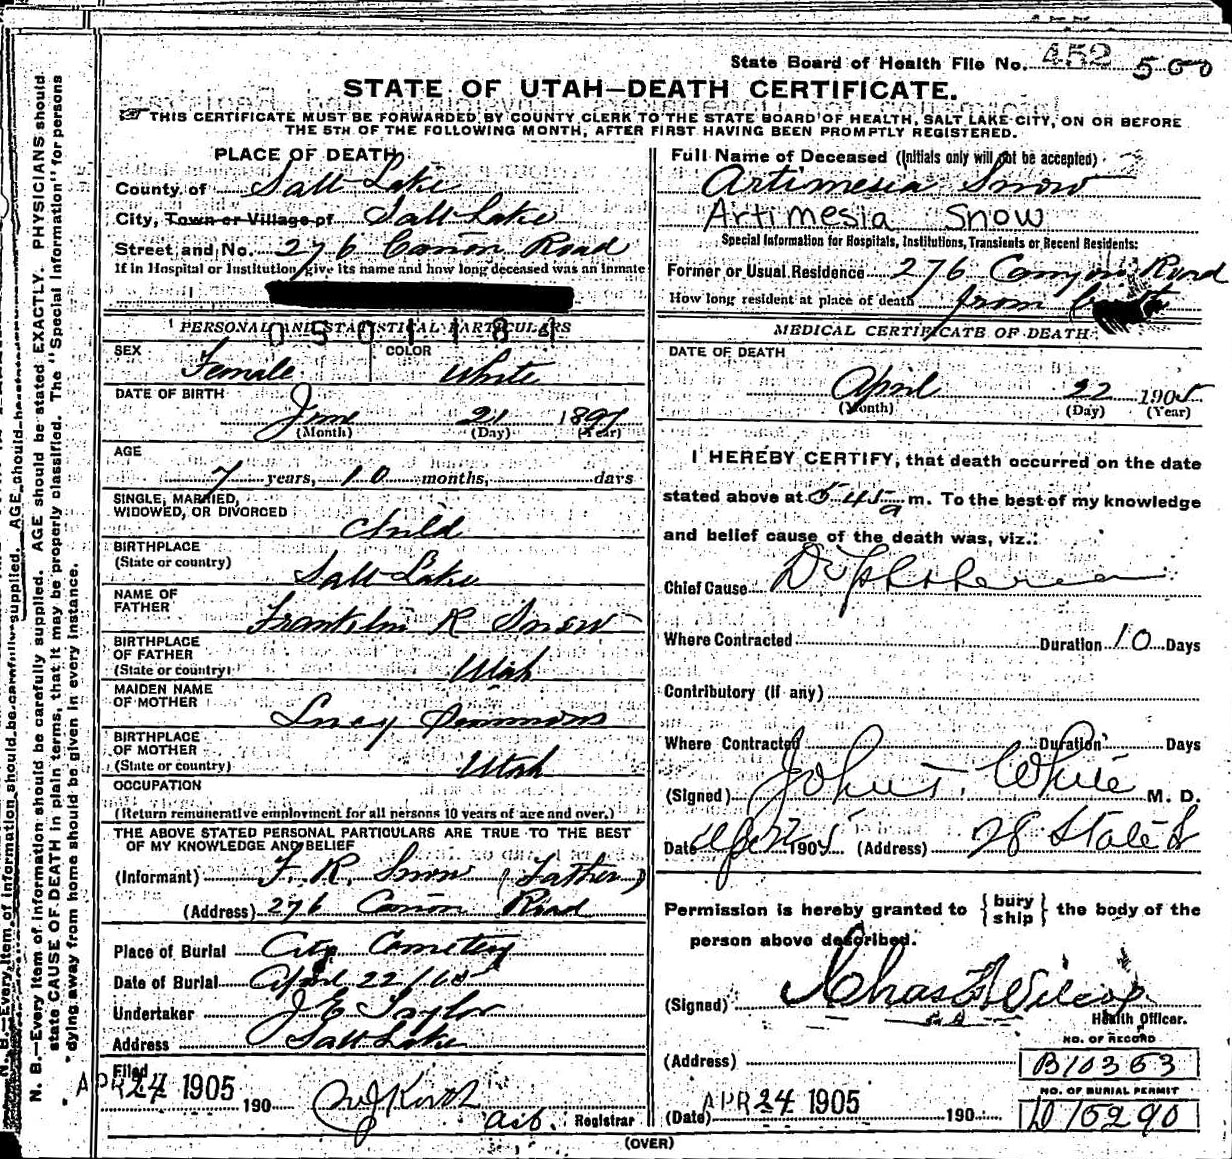 State Board of Health File No. 452 500
STATE OF UTAH—DEATH CERTIFICATE.
THIS CERTIFICATE MUST BE FORWARDED BY COUNTY CLERK TO THE STATE BOARD OF HEALTH, SALT LAKE CITY, ON OR BEFORE
THE 5TH OF THE FOLLOWING MONTH, AFTER FIRST HAVING BEEN PROMPTLY REGISTERED.
PLACE OF DEATH
County of Salt Lake
City, Town or Village of Salt Lake
Street and No. 276 Canon Road
If in Hospital or Institution give its name and how long deceased was an inmate
PERSONAL AND STATISTICAL PARTICULERS
0501181
SEX Female COLOR White
DATE OF BIRTH
June 21 1897
(Month) (Day) (Year)
AGE
7 years, 10 months, days
SINGLE, MARRIED,
WIDOWED, OR DIVORCED
Child
BIRTHPLACE
(State or country)
Salt Lake
NAME OF
FATHER
Franklin R Snow
BIRTHPLACE
OF FATHER
(State or country)
Utah
MAIDEN NAME
OF MOTHER
Lucy Simmons
BIRTHPLACE
OF MOTHER
(State or country)
Utah
OCCUPATION
(Return remunerative employment for all persons 10 years of age and over.)
THE ABOVE STATED PERSONAL PARTICULARS ARE TRUE TO THE BEST
OF MY KNOWLEDGE AND BELIEF
(Informant) F. R. Snow (Father)
(Address) 276 Canon Road
Place of Burial City Cemetery
Date of Burial April 22/05
Undertaker J E Taylor
Address Salt Lake
Filed
APR 24 1905 190
Registrar
Full Name of Deceased (Initials only will not be accepted)
Artimesia Snow
Artimesia Snow
Special Information for Hospitals, Institutions, Transients or Recent Residents:
Former or Usual Residence 276 Canyon Road
How long resident at place of death from
MEDICAL CERTIFICATE OF DEATH
DATE OF DEATH
April 22 1905
(Month) (Day) (Year)
I HEREBY CERTIFY, that death occurred on the date
stated above at 5 45 a m. To the best of my knowledge
and belief cause of the death was, viz.:
Chief Cause Diphtheria
Where Contracted Duration 10 Days
Contributory (if any)
Where Contracted Duration Days
(Signed) John T. White M. D.
Date 1905 (Address) 28 State St
Permission is hereby granted to {bury ship} the body of the
person above described.
(Signed) Chas F Wilcox
Health Officer.
(Address)
NO. OF RECORD
B10363
NO. OF BURIAL PERMIT
D 15290
(Date) APR 24 1905 190
(OVER)
N. B.—Every item of information should be carefully supplied. AGE should be stated EXACTLY. PHYSICIANS should
state CAUSE OF DEATH in plain terms, that it may be properly classified. The "Special Information" for persons
dying away from home should be given in every instance.